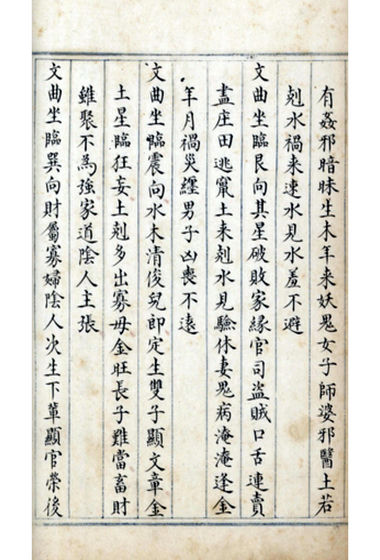 有姦邪暗昧生木年来妖鬼女子師婆邪醫土若
剋水禍来速水見水羞不避
文曲坐臨艮向其星破敗家緣官司盜賊口舌連賣
盡庄田逃竄土来剋水見驗休妻鬼病淹淹逢金
年月禍災纏男子凶喪不遠
文曲坐臨震向水木清俊兒即定生雙子顯文章金
土星臨狂妄土剋多出寡母金旺長子難當畜財
雖聚不為強家道陰人主張
文曲坐臨巽向財屬寡婦陰人次生下輩顯官榮後